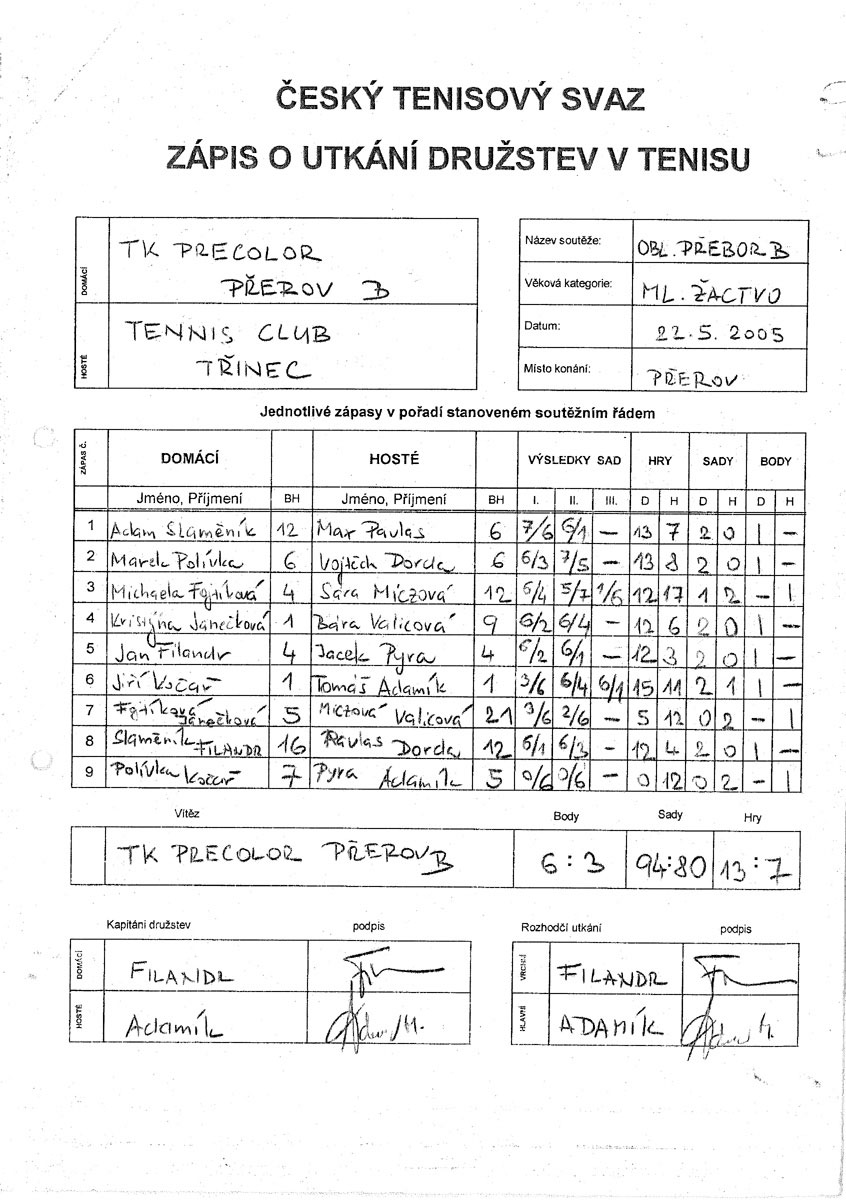 ČESKÝ TENISOVÝ SVAZ
ZÁPIS O UTKÁNÍ DRUŽSTEV V TENISU
DOMÁCÍ TK PRECOLOR
PŘEROV B
HOSTÉ TENNIS CLUB
TŘINEC
Název soutěže: OBL. PŘEBOR B
Věková kategorie: ML. ŽACTVO
Datum: 22.5. 2005
Místo konání: PŘEROV
Jednotlivé zápasy v pořadí stanoveném soutěžním řádem
ZÁPAS Č. DOMÁCÍ HOSTÉ VÝSLEDKY SAD HRY SADY BODY
Jméno, Příjmení BH Jméno, Příjmení BH I. II. III. D H D H D H
1 Adam Slaměník 12 Max Pavlas 6 7/6 6/1 – 13 7 2 0 1 –
2 Marek Polívka 6 Vojtěch Dorda 6 6/3 7/5 – 13 8 2 0 1 –
3 Michaela Fojtíková 4 Sára Miczová 12 6/4 5/7 1/6 12 17 1 2 – 1
4 Kristýna Janečková 1 Bára Valicová 9 6/2 6/4 – 12 6 2 0 1 –
5 Jan Filandr 4 Jacek Pyra 4 6/2 6/1 – 12 3 2 0 1 –
6 Jiří Kočař 1 Tomáš Adamík 1 3/6 6/4 6/1 15 11 2 1 1 –
7 Fojtíková Janečková 5 Miczová Valicová 21 3/6 2/6 – 5 12 0 2 – 1
8 Slaměník FILANDR 16 Pavlas Dorda 12 6/1 6/3 – 12 4 2 0 1 –
9 Polívka Kočař 7 Pyra Adamík 5 0/6 0/6 – 0 12 0 2 – 1
Vítěz Body Sady Hry
TK PRECOLOR PŘEROV B 6:3 94:80 13:7
Kapitáni družstev podpis Rozhodčí utkání podpis
DOMÁCÍ FILANDR VRCHNÍ FILANDR
HOSTÉ Adamík HLAVNÍ ADAMÍK